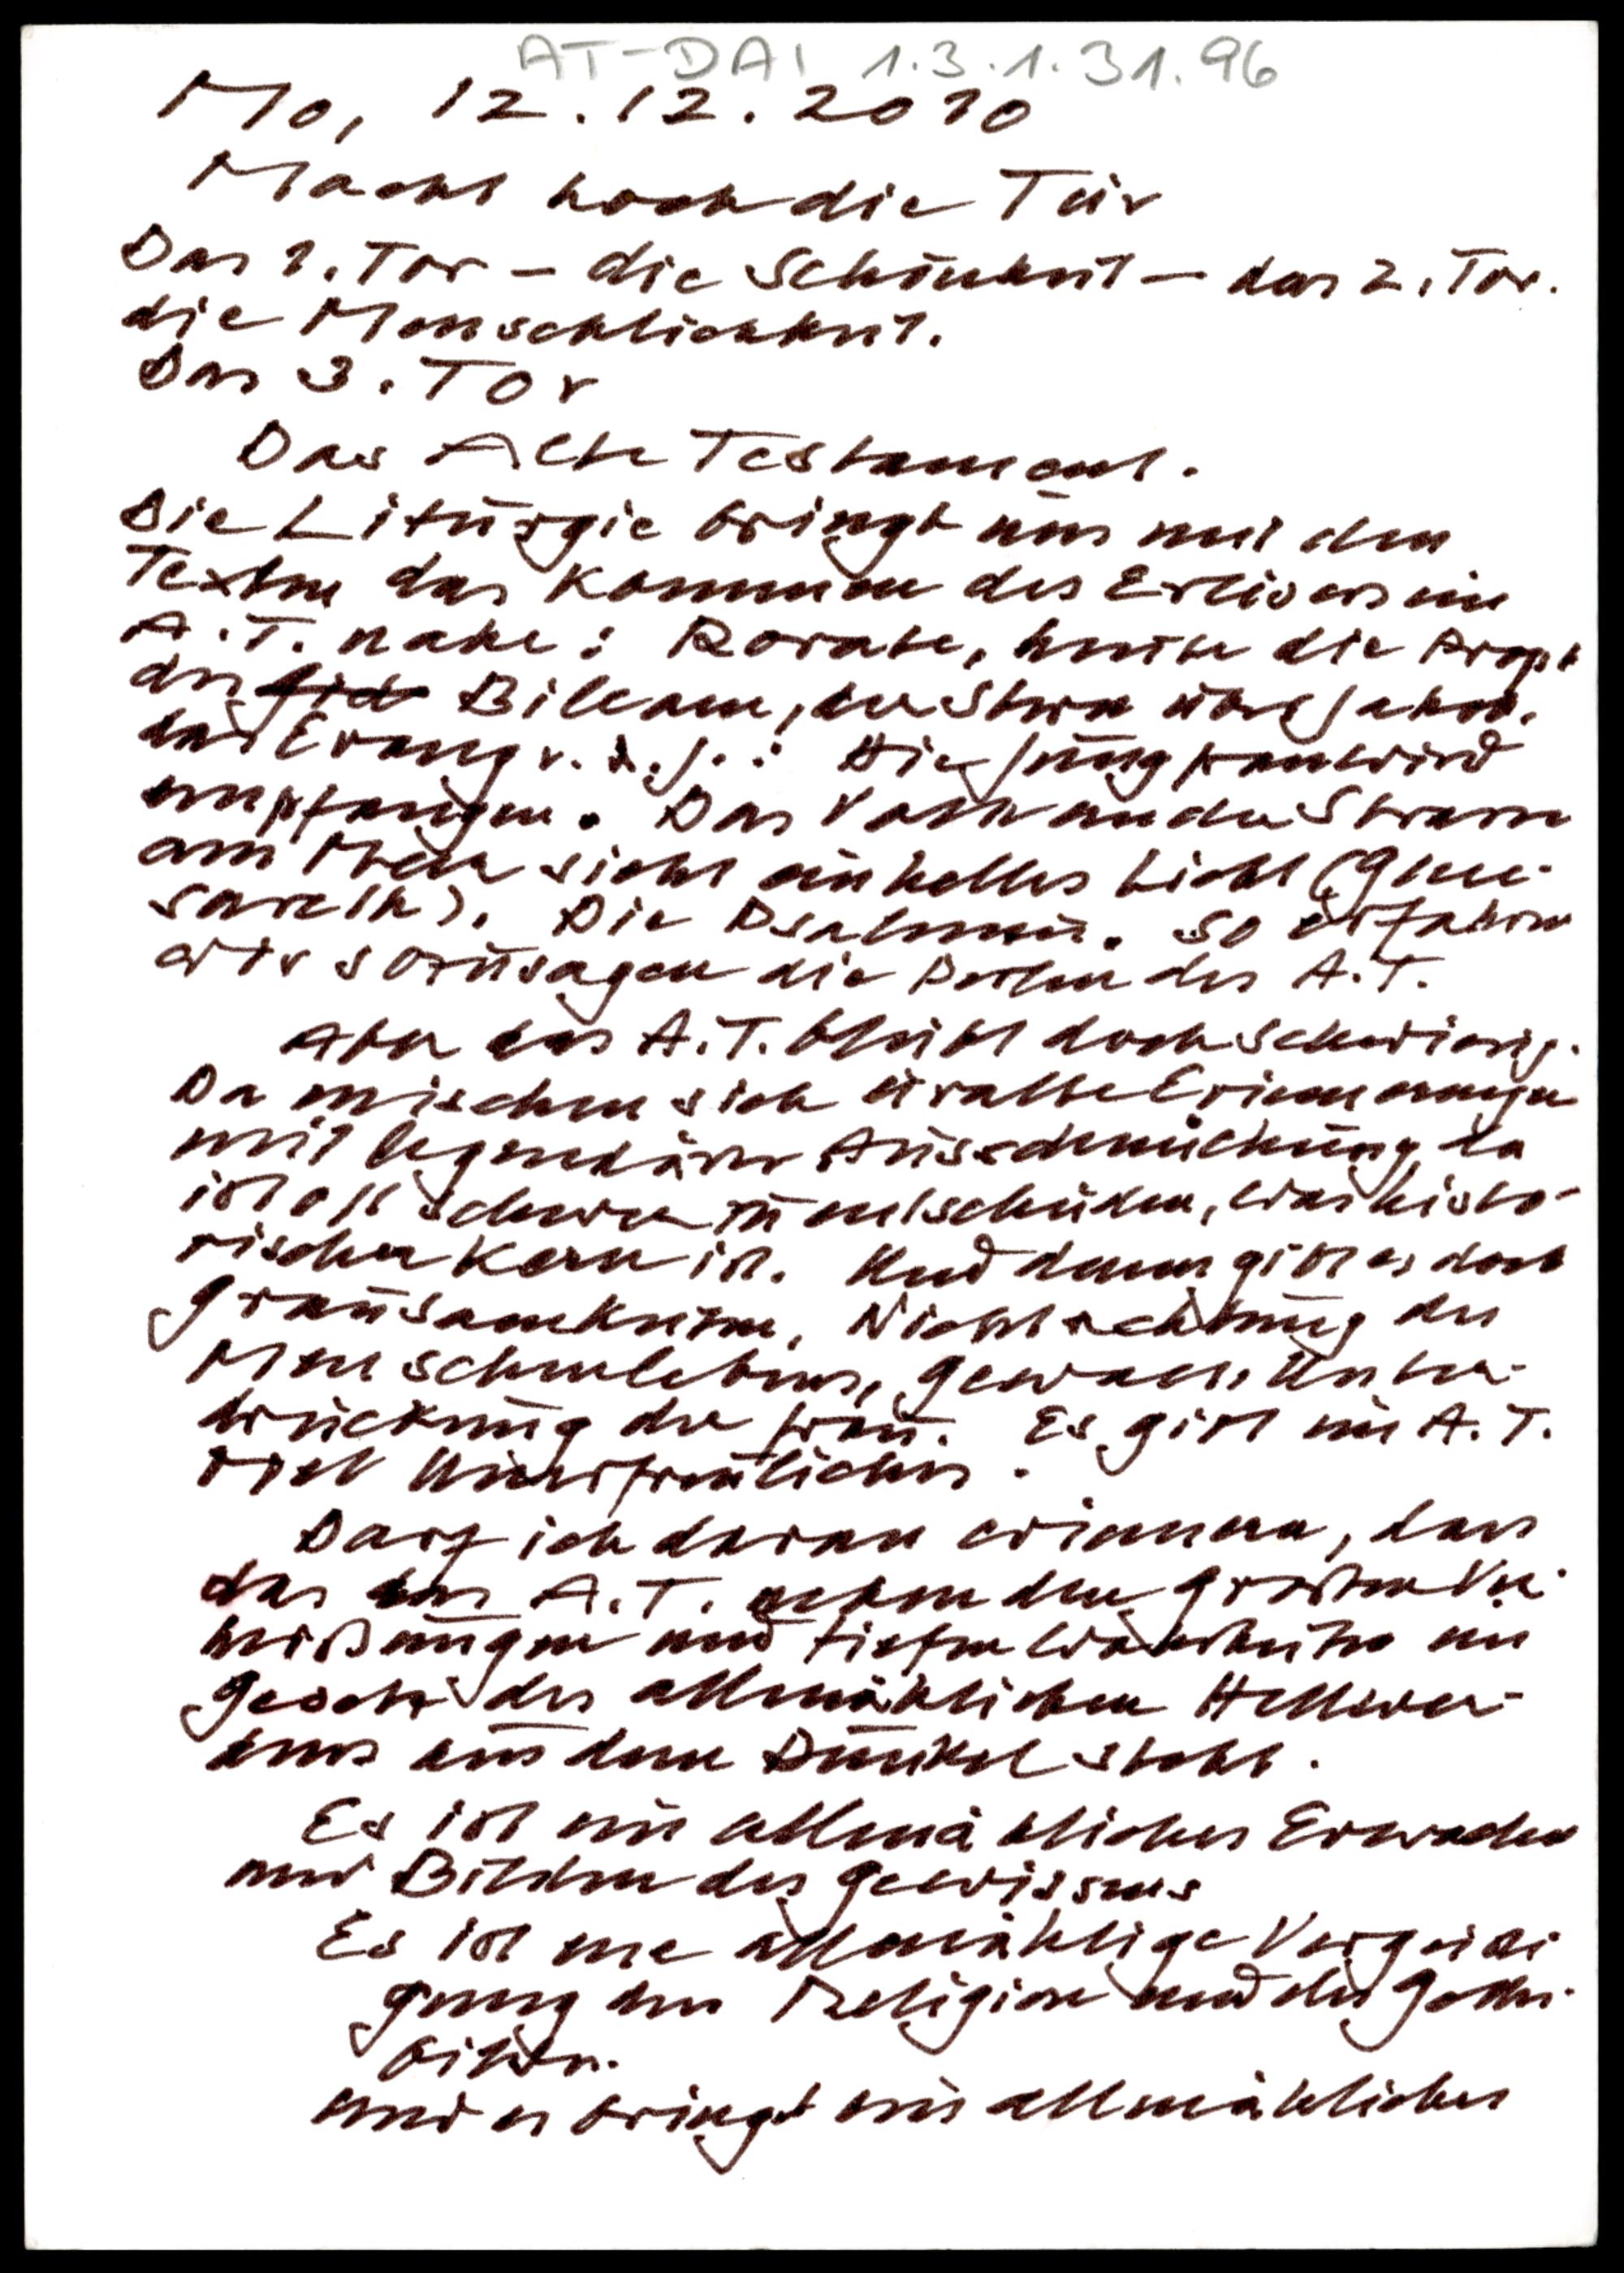 AT-DAI 1.3.1.31.96
Mo, 12.12.2010
Macht hoch die Tür
Das 1. Tor – die Schönheit – das 2. Tor.
die Menschlichkeit.
Das 3. Tor
Das Alte Testament.
Die Liturgie bringt uns mit den
Texten das Kommen des Erlösers im
A.T. nahe: Rorate, heute die Proph
des Bileam, der Stern über Jakob,
das Evang v. Die Jungfrau wird
empfangen. Das Volk an der Strasse
am Meer sieht ein helles Licht (Gene-
sareth). Die Psalmen. So erfahren
wir sozusagen die Perlen des A.T.
Aber das A.T. bleibt doch schwierig.
Da mischen sich uralte Erinnerungen
mit legendärer Ausschmückung, da
ist oft schwer zu entscheiden, was histo-
rischer Kern ist. Und dann gibt es doch
Grausamkeiten, Nichtachtung des
Menschenlebens, Gewalt, Unter-
drückung der Frau. Es gibt im A.T.
viel Unerfreuliches.
Darf ich daran erinnern, dass
das das A.T. neben den großen Ver-
heißungen und tiefen Wahrheiten im
Gesetz des allmählichen Hellwer-
dens aus dem Dunkel steht.
Es ist ein allmähliches Erwachen
und Bilden des Gewissens
Es ist eine allmählige Vergeisti
gung der Religion und des Gottes-
bildes.
und es bringt ein allmähliches